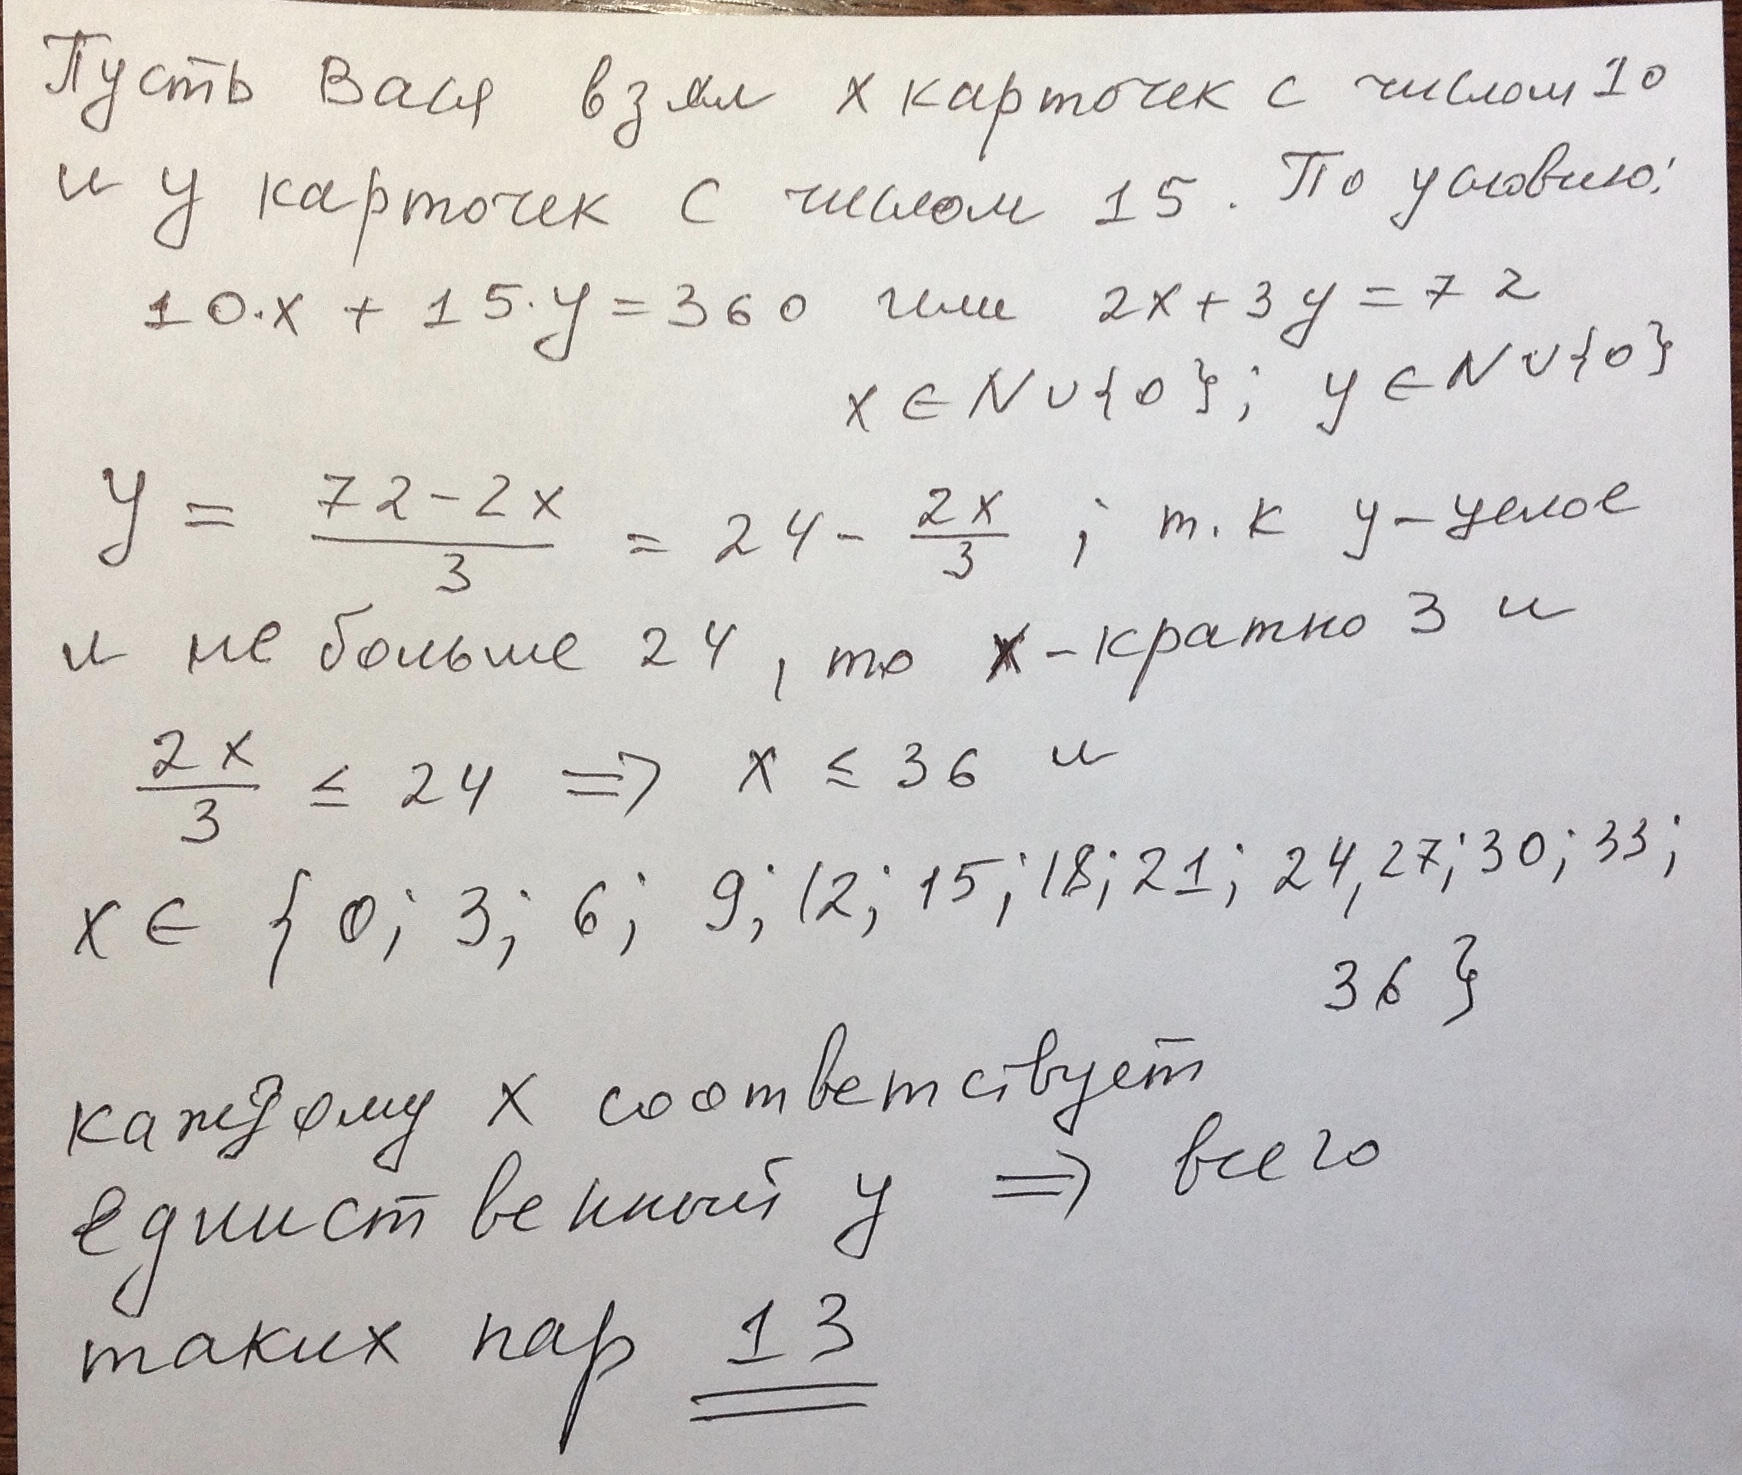 Пусть Вася взял x карточек с числом 10
и y карточек с числом 15. По условию:
10·x + 15·y = 360 или 2x + 3y = 72
x ∈ N ∪ {0}; y ∈ N ∪ {0}
y = (72 - 2x)/3 = 24 - 2x/3 ; т.к y - целое
и не больше 24, то x - кратно 3 и
2x/3 ≤ 24 => x ≤ 36 и
x ∈ {0; 3; 6; 9; 12; 15; 18; 21; 24, 27; 30; 33;
36}
каждому x соответствует
единственный y => всего
таких пар 13